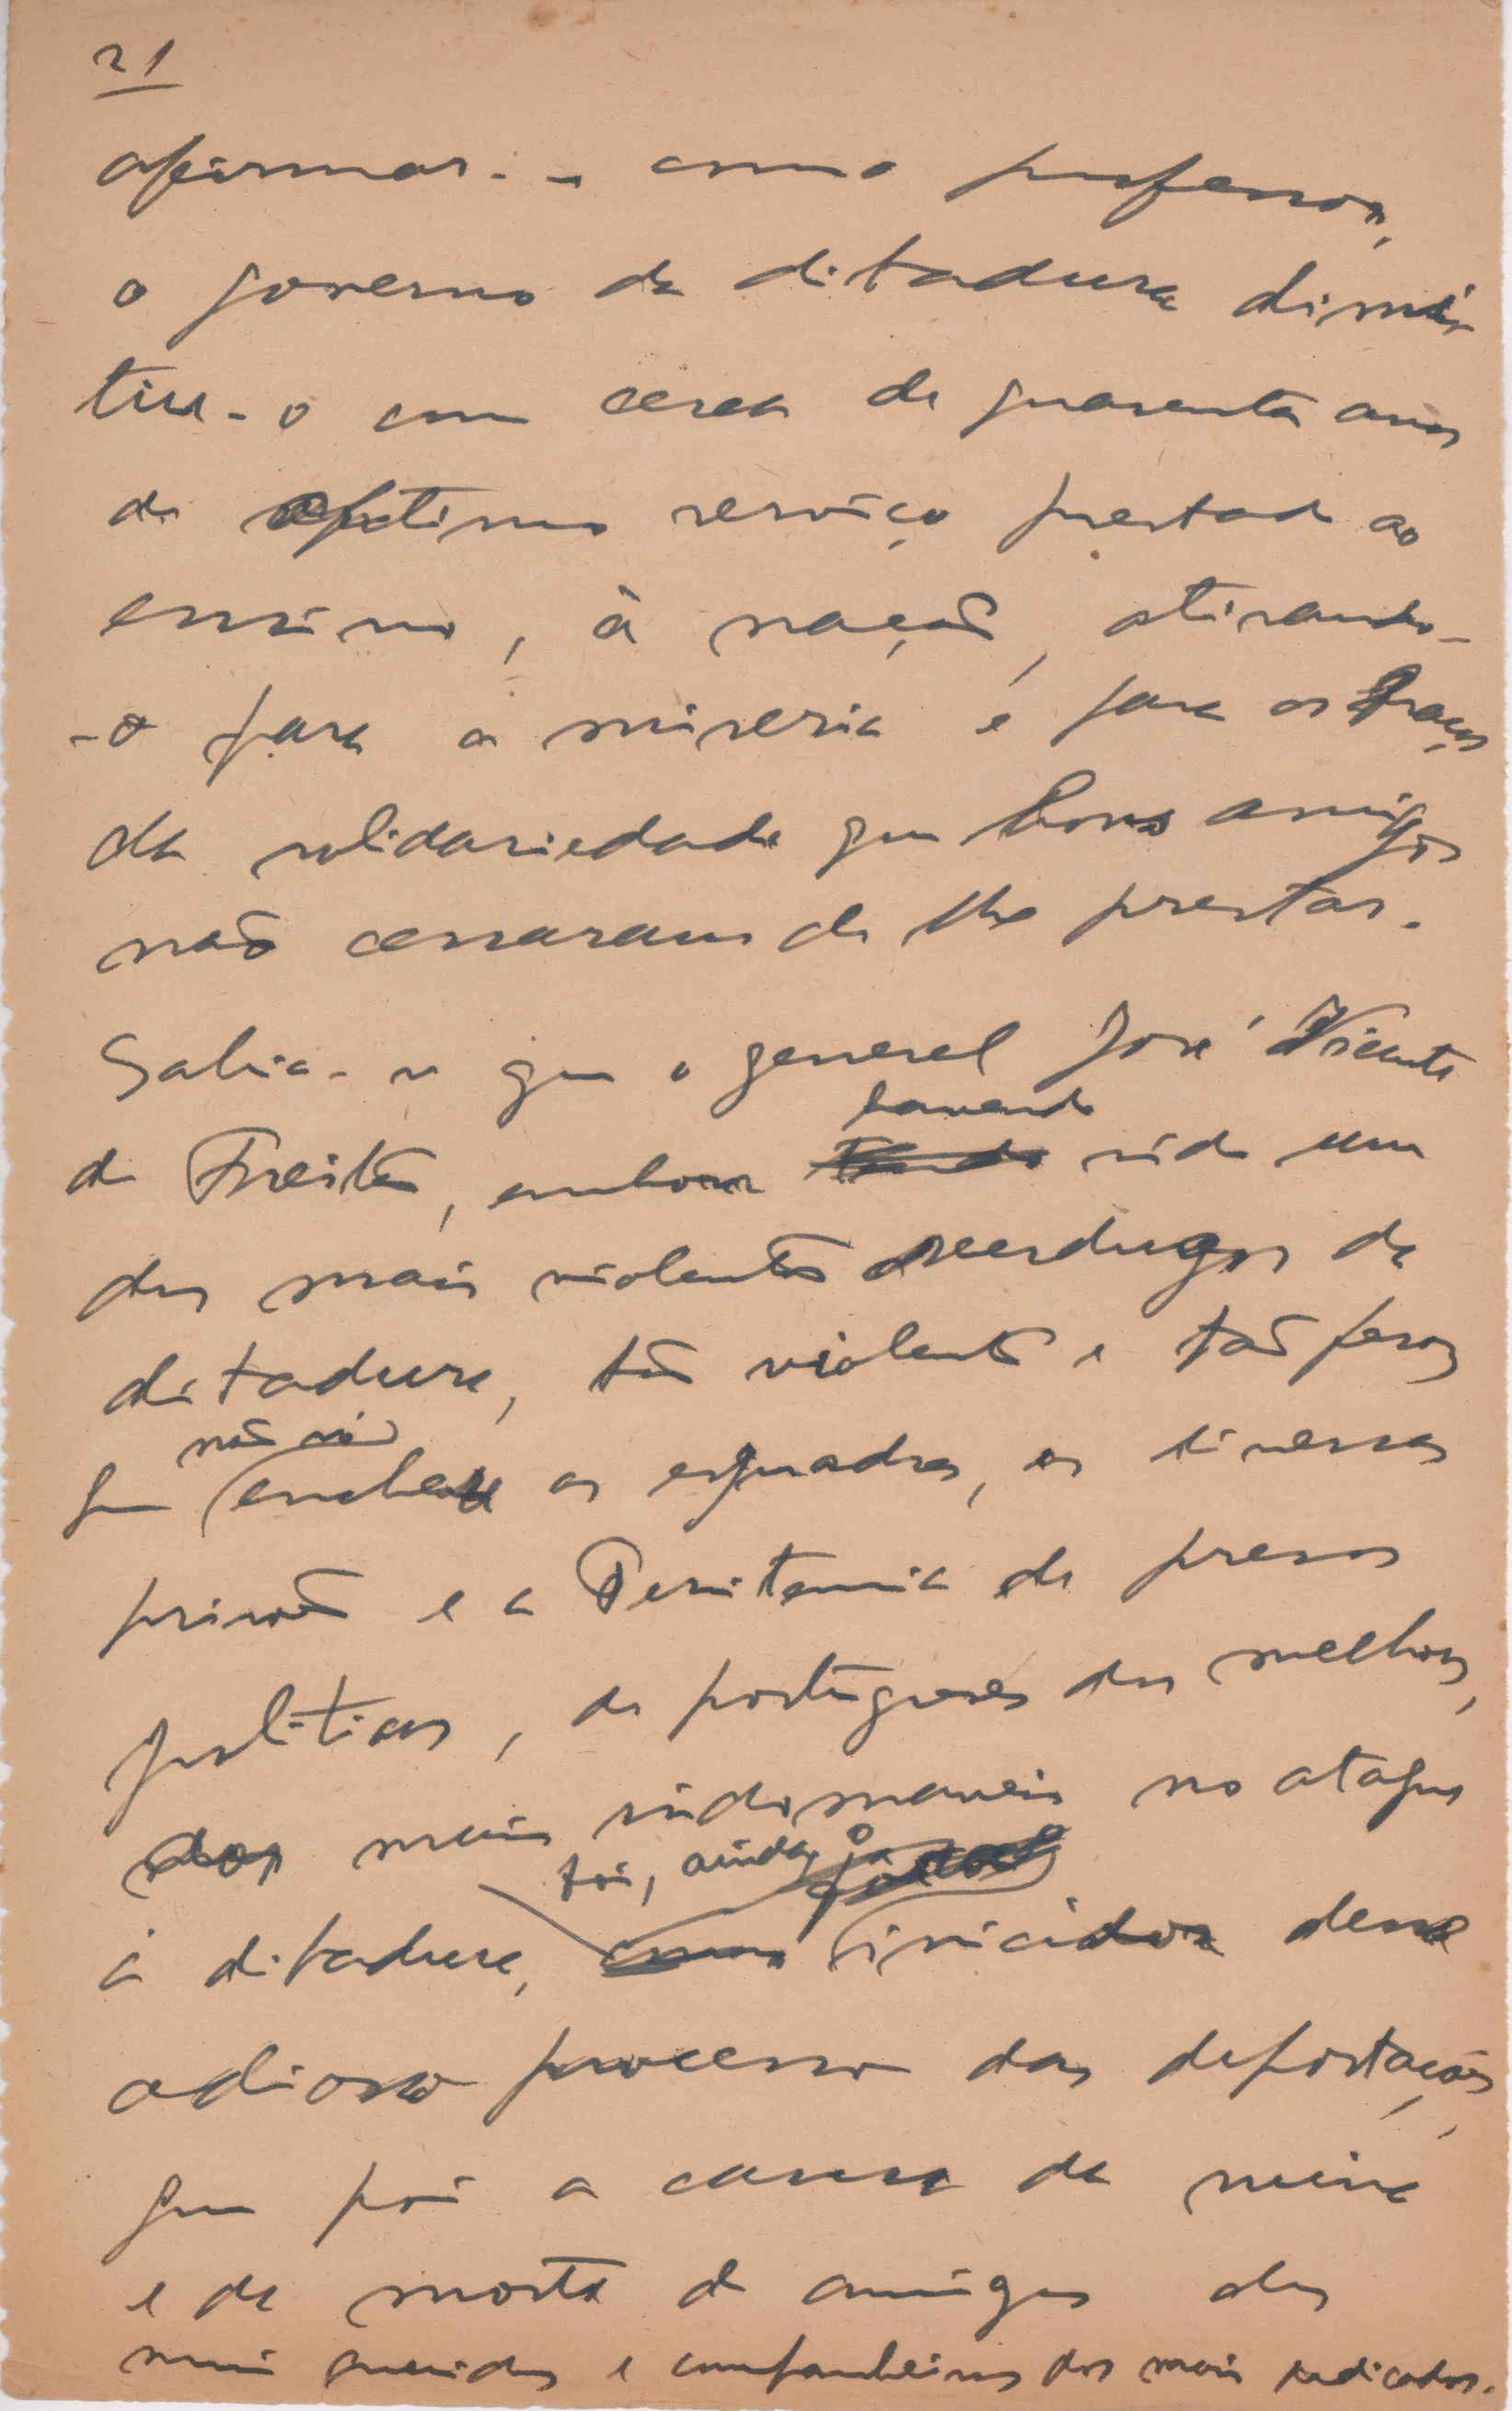 21
afirmar-se como professor,
o governo da ditadura dimi-
tiu-o com cerca de quarenta anos
de optimo serviço prestado ao
ensino, à nação, atirando-
-o para a miseria e para os braços
da solidariedade que bons amigos
não cessaram de lhe prestar.
Sabia-se que o general José Vicente
de Freitas, embora havendo sido um
dos mais violentos verdugos da
ditadura, tão violento e tão feroz
que não só encheu as esquadras, as diversas
prisões e a Penitenciaria de presos
politicos, de portugueses dos melhores,
dos mais indomaveis no ataque
à ditadura, foi, ainda, o iniciador desse
odioso processo das deportações,
que foi a causa da ruina
e da morte de amigos dos
mais queridos e companheiros dos mais dedicados.